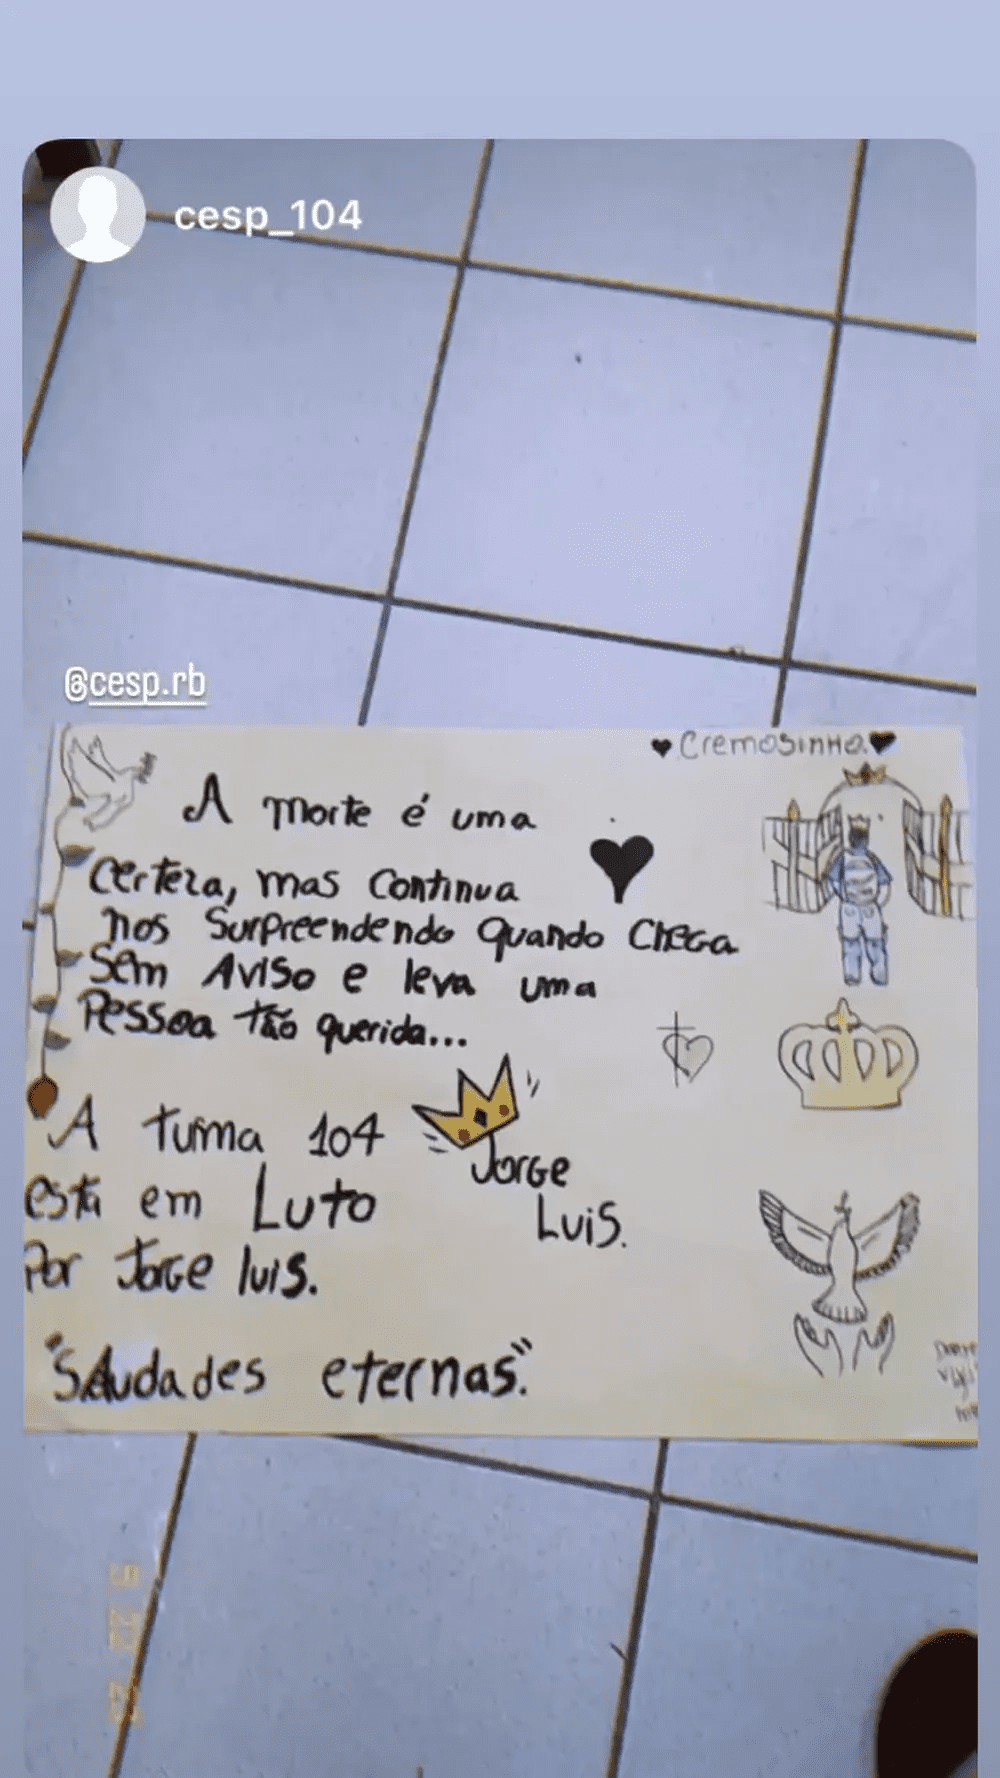 cesp_104
@cesp.rb
Cremosinho
A morte é uma
certeza, mas continua
nos surpreendendo quando chega
sem aviso e leva uma
pessoa tão querida...
A turma 104
está em Luto
Por Jorge luis.
Jorge
Luis.
"SAudades eternas".